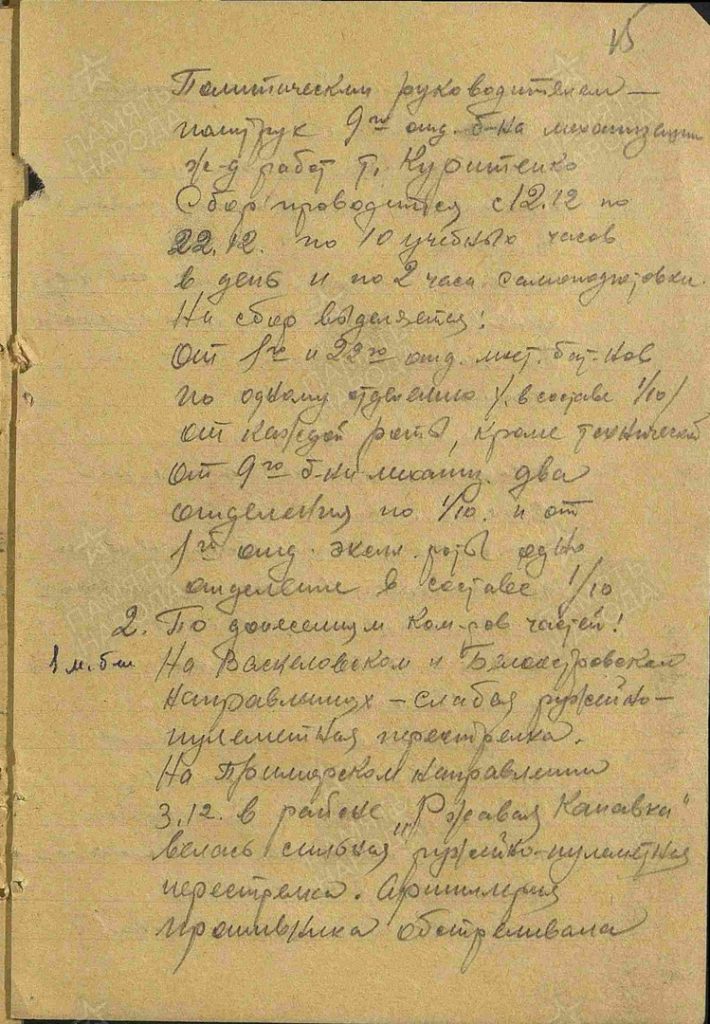 15
Политическим руководителем —
политрук 9го отд. б-на механизации
ж-д работ т. Куриленко
Сбор проводится с 12.12 по
22.12. по 10 учебных часов
в день и по 2 часа самоподготовки.
На сбор выделяется:
От 1го и 22го отд. мост. бат-нов
по одному отделению /в составе 1/10/
от каждой роты, кроме технической
от 9го б-на механиз. два
отделения по 1/10. и от
1ой отд. экспл. роты одно
отделение в составе 1/10
2. По донесениям ком-ров частей:
1 м. б-н
На Васкеловском и Белоостровском
направлениях – слабая ружейно-
пулеметная перестрелка.
На Приморском направлении
3.12. в районе „Ржавая Канавка"
велась сильная ружейно-пулеметная
перестрелка. Артиллерия
противника обстреливала